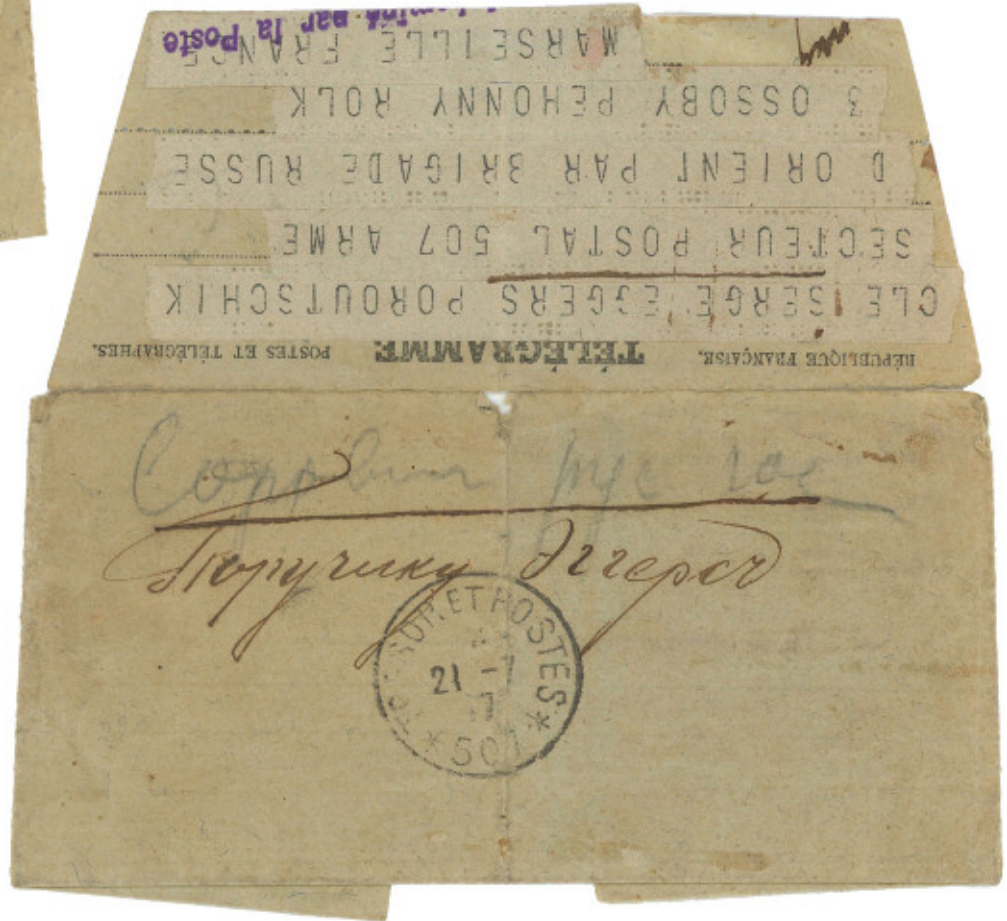 RÉPUBLIQUE FRANÇAISE. TÉLÉGRAMME POSTES ET TÉLÉGRAPHES.
CLE SERGE EGGERS POROUTSCHIK
SECTEUR POSTAL 507 ARME
D ORIENT PAR BRIGADE RUSSE
3 OSSOBY PEHONNY ROLK
MARSEILLE FRANCE
par la Poste
Поручику Эггерсъ
ET POSTES
21 -7